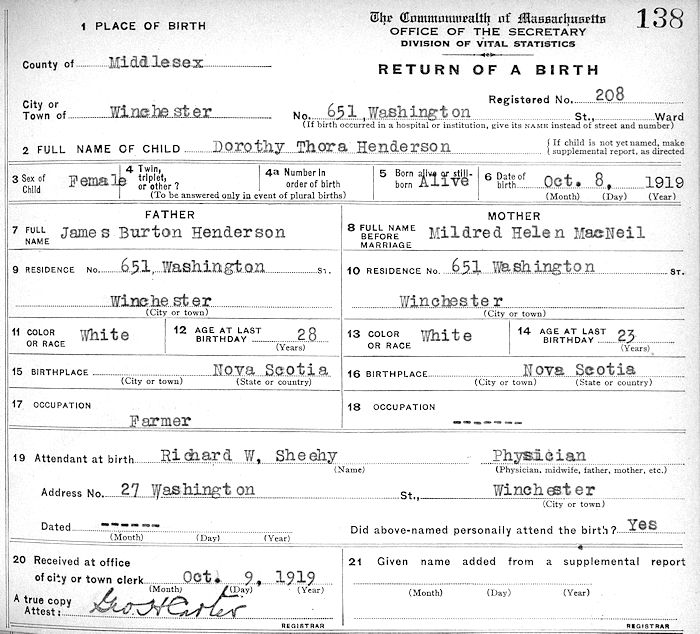 The Commonwealth of Massachusetts 138
1 PLACE OF BIRTH OFFICE OF THE SECRETARY
DIVISION OF VITAL STATISTICS
County of Middlesex RETURN OF A BIRTH
Registered No. 208
City or
Town of Winchester No. 651 Washington St., Ward
(If birth occurred in a hospital or institution, give its NAME instead of street and number)
2 FULL NAME OF CHILD Dorothy Thora Henderson { If child is not yet named, make supplemental report, as directed
3 Sex of Child Female 4 Twin, triplet, or other? 4a Number in order of birth 5 Born alive or still-born Alive 6 Date of birth Oct. 8, 1919
(To be answered only in event of plural births) (Month) (Day) (Year)
FATHER MOTHER
7 FULL NAME James Burton Henderson 8 FULL NAME BEFORE MARRIAGE Mildred Helen MacNeil
9 RESIDENCE No. 651 Washington ST. 10 RESIDENCE No. 651 Washington ST.
Winchester Winchester
(City or town) (City or town)
11 COLOR OR RACE White 12 AGE AT LAST BIRTHDAY 28 13 COLOR OR RACE White 14 AGE AT LAST BIRTHDAY 23
(Years) (Years)
15 BIRTHPLACE Nova Scotia 16 BIRTHPLACE Nova Scotia
(City or town) (State or country) (City or town) (State or country)
17 OCCUPATION 18 OCCUPATION
Farmer -------
19 Attendant at birth Richard W, Sheehy Physician
(Name) (Physician, midwife, father, mother, etc.)
Address No. 27 Washington St., Winchester
(City or town)
Dated ------ Did above-named personally attend the birth? Yes
(Month) (Day) (Year)
20 Received at office of city or town clerk Oct. 9, 1919 21 Given name added from a supplemental report
(Month) (Day) (Year) (Month) (Day) (Year)
A true copy
Attest: Geo. H Carter
REGISTRAR REGISTRAR